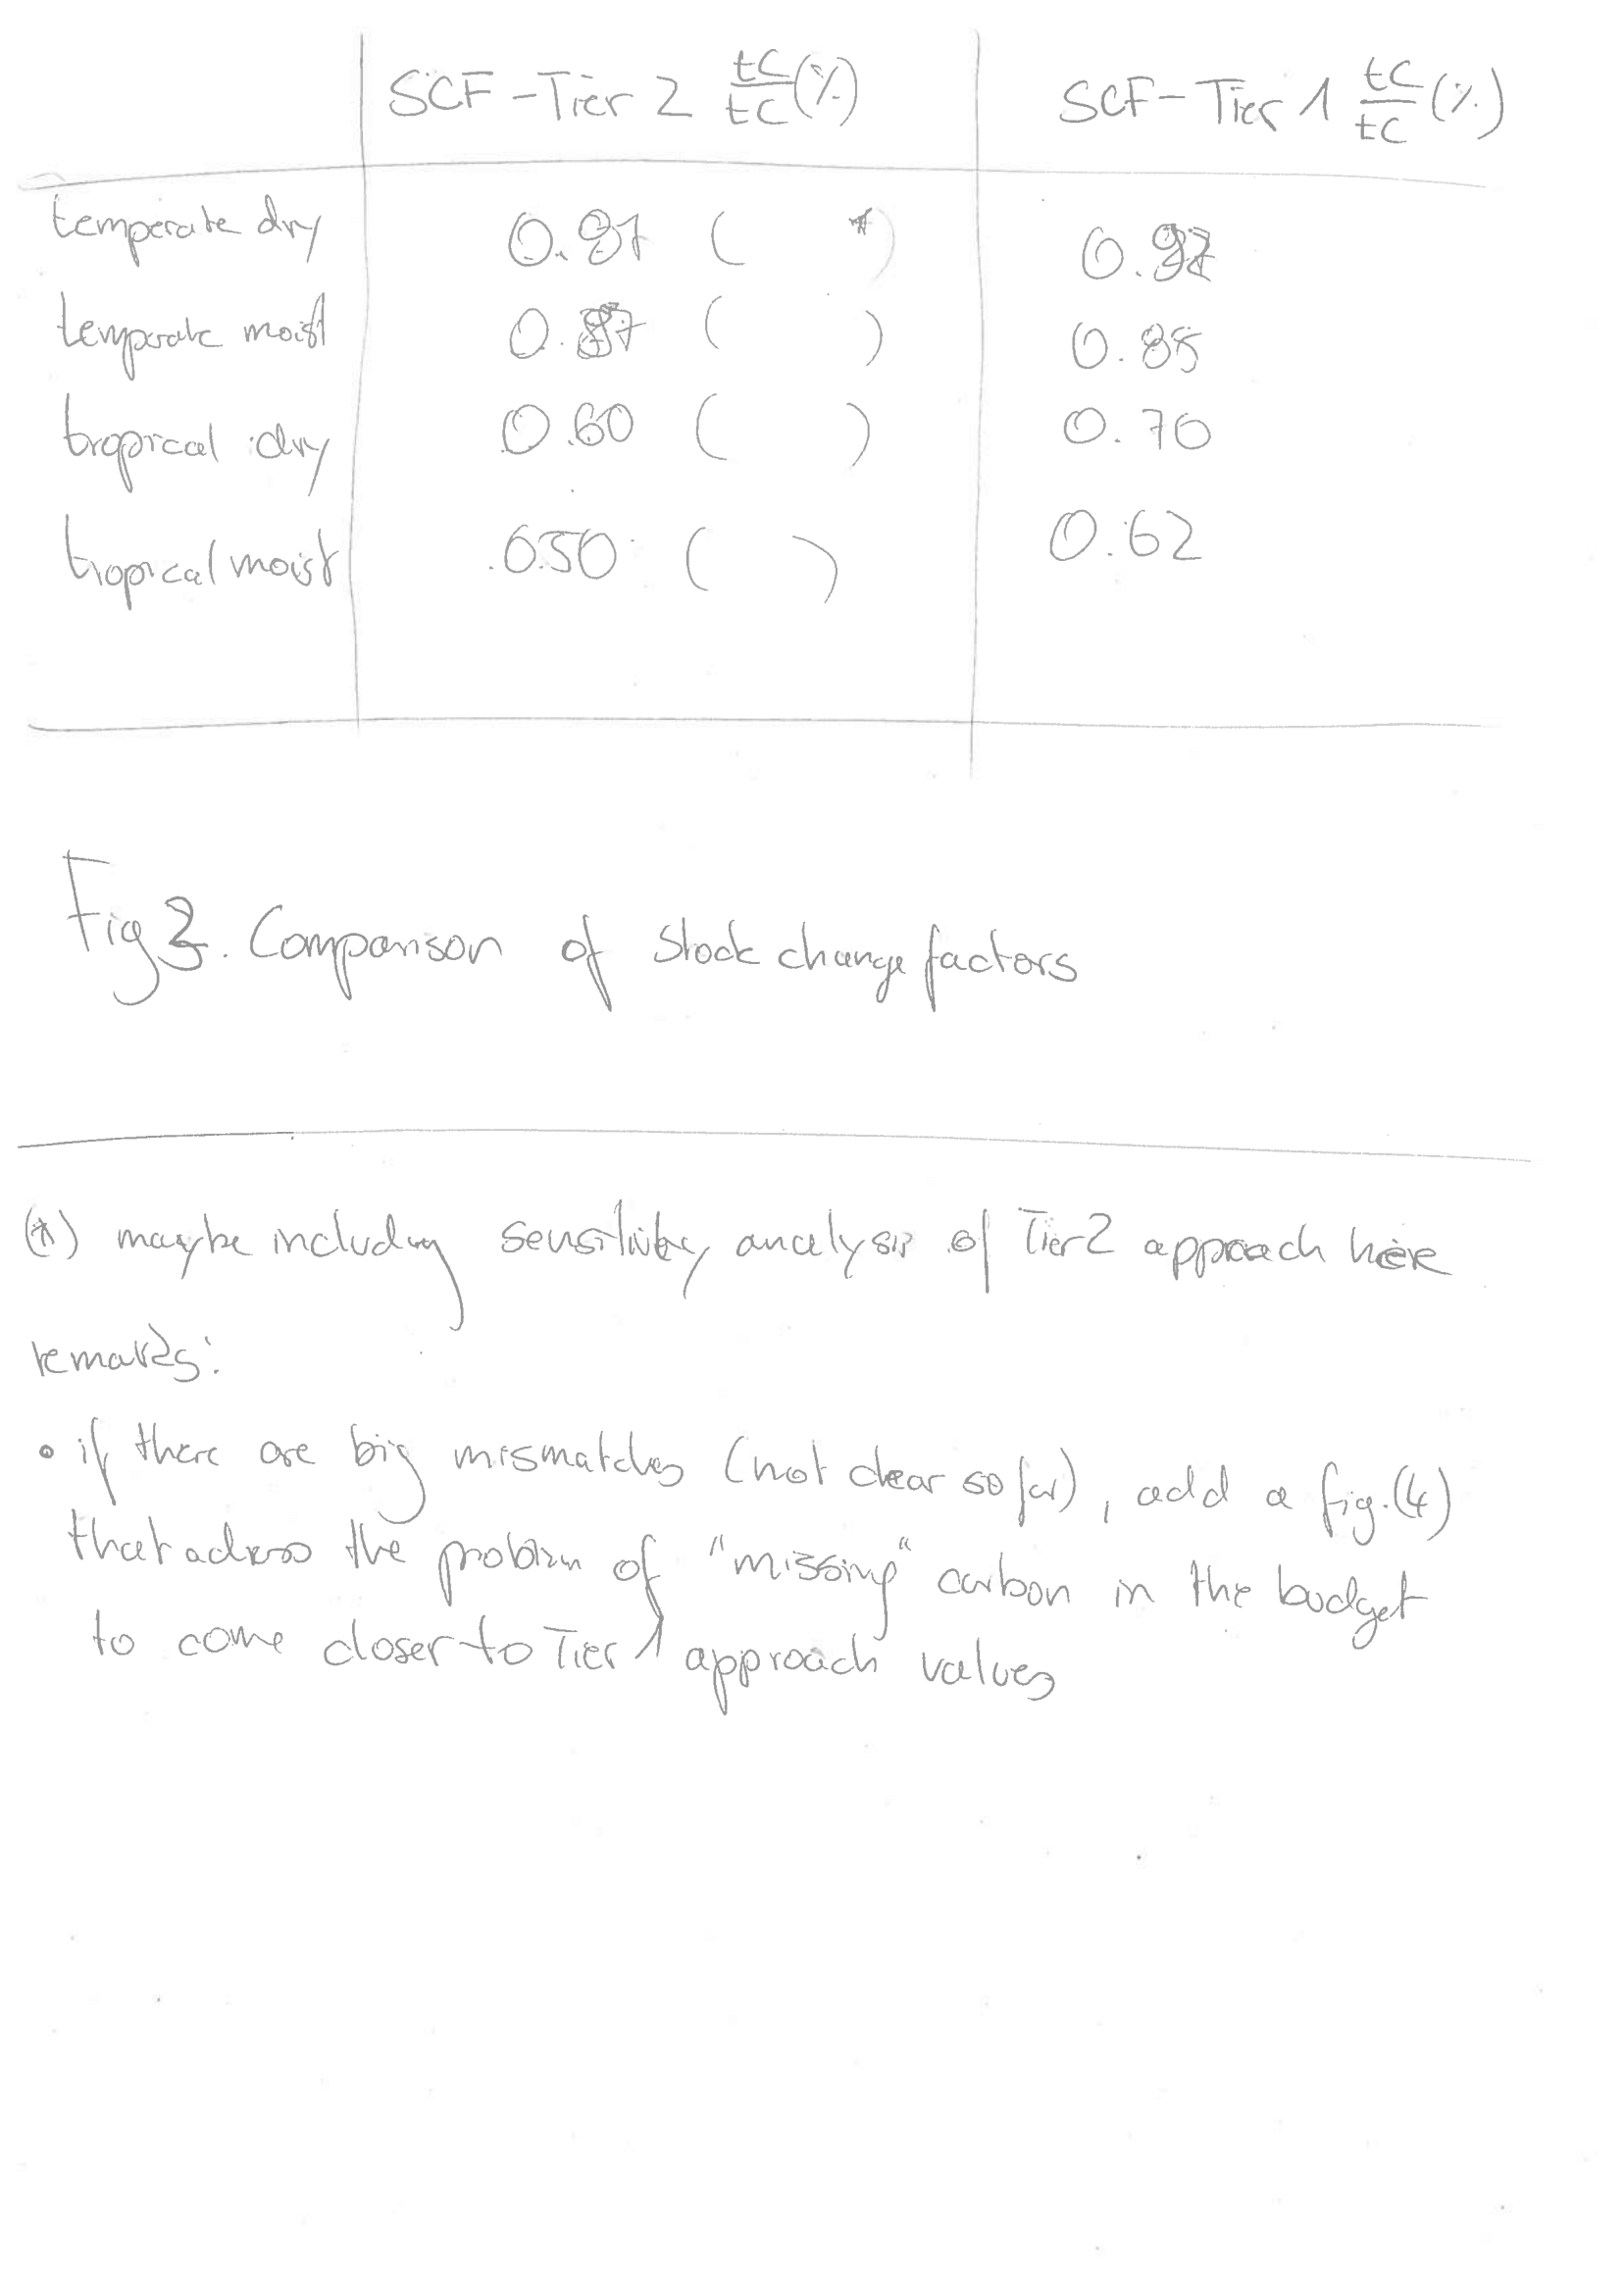 SCF - Tier 2 tC/tC (%) SCF - Tier 1 tC/tC (%)
temperate dry ( *)
temperate moist ( ) 0.85
tropical dry 0.60 ( ) 0.70
tropical moist 0.50 ( ) 0.62
Fig 3. Comparison of stock change factors
(*) maybe including sensitivity analysis of Tier 2 approach here
remarks:
• if there are big mismatches (not clear so far), add a fig. (4)
that adress the problem of "missing" carbon in the budget
to come closer to Tier 1 approach values